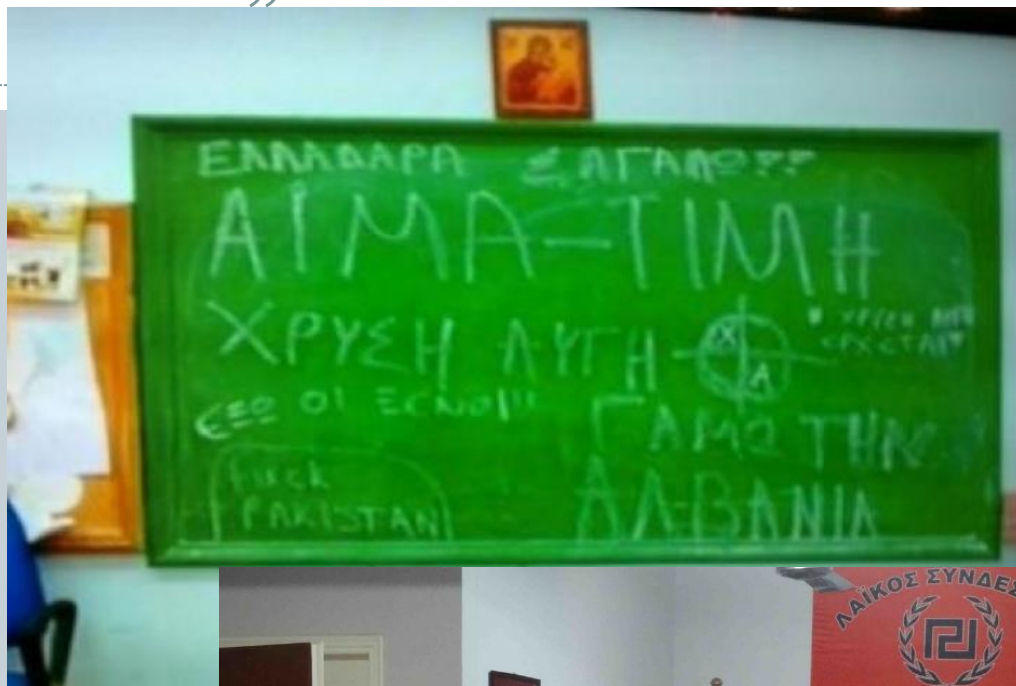 ΕΛΛΑΔΑΡΑ Σ ΑΓΑΠΩ
ΑΙΜΑ-ΤΙΜΗ
ΧΡΥΣΗ ΑΥΓΗ
Χ
Α
ΕΞΩ ΟΙ ΞΕΝΟΙ!!!
ΓΑΜΩ ΤΗΝ
ΑΛΒΑΝΙΑ
Fuck
PAKISTAN
ΛΑΪΚΟΣ ΣΥΝΔΕΣ